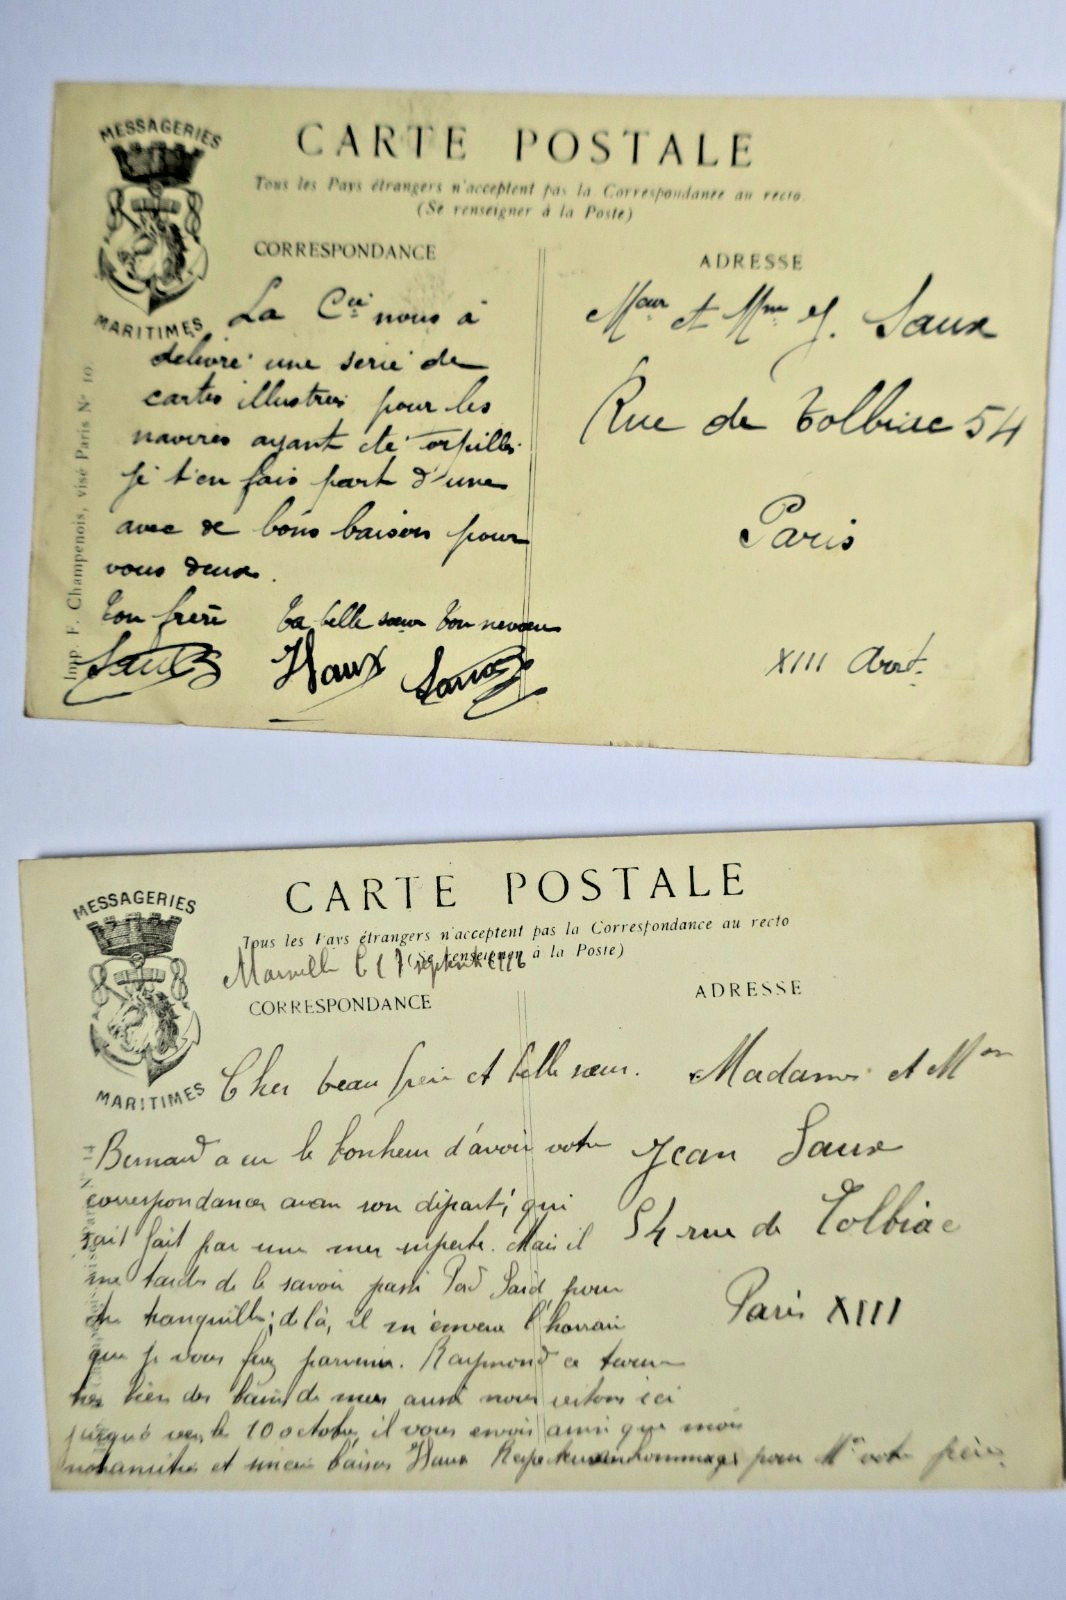 MESSAGERIES
MARITIMES
CARTE POSTALE
Tous les Pays étrangers n'acceptent pas la Correspondance au recto.
(Se renseigner à la Poste)
CORRESPONDANCE
La Cie nous à
delivré une serie de
cartes illustrés pour les
navires ayant été torpillés
je t'en fais part d'une
avec de bons baisers pour
vous deux.
ton frère ta belle sœur ton neveu
Saux HSaux Saux
ADRESSE
Mr et Mme J. Saux
Rue de Tolbiac 54
Paris
XIII Arrt.
Imp. F. Champenois, visé Paris No 10.
MESSAGERIES
MARITIMES
CARTE POSTALE
Tous les Pays étrangers n'acceptent pas la Correspondance au recto
(Se renseigner à la Poste)
Marseille le 17 septembre 1916
CORRESPONDANCE
Cher beau frère et belle sœur.
Bernard a eu le bonheur d'avoir votre
correspondance avan son départ, qui
sait fait par une mer superbe. Mais il
me tarde de le savoir passé Pord Saïd, pour
être tranquille; de là, il m'enverra l'horrair
que je vous feré parvenir. Raymond ce
bien des bains de mers aussi nous restons ici
jusqué vers le 10 octobre, il vous envois ainsi que moi
not amitiés et baisers HSaux Respectueux hommages pour Mr votre père
ADRESSE
Madame et Mr
Jean Saux
54 rue de Tolbiac
Paris XIII